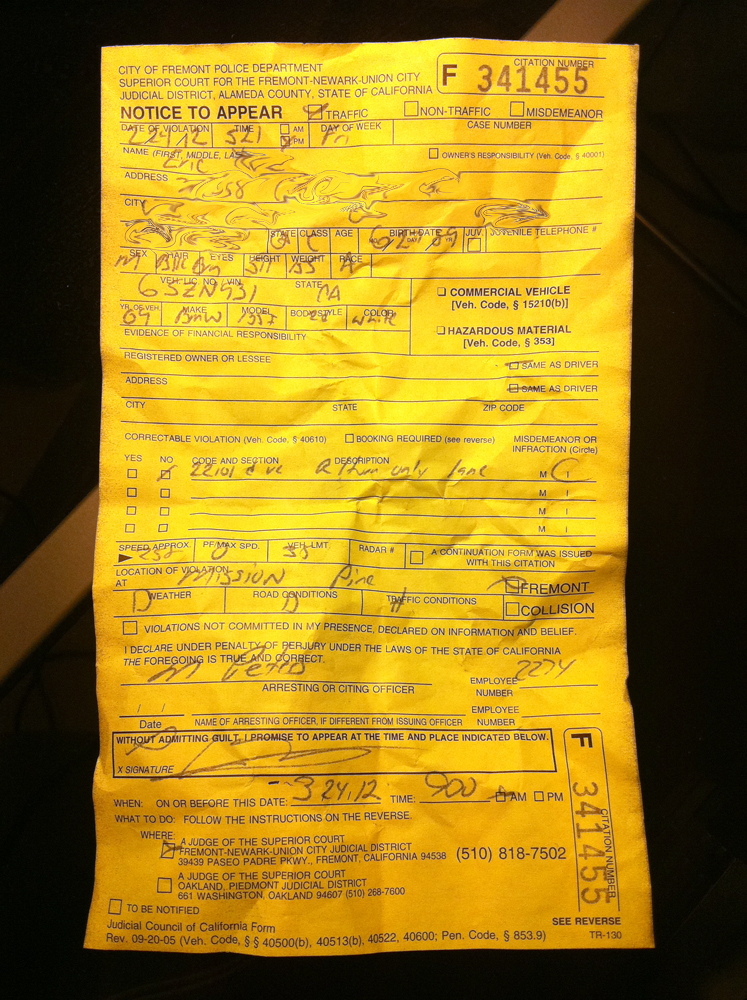 CITY OF FREMONT POLICE DEPARTMENT
SUPERIOR COURT FOR THE FREMONT-NEWARK-UNION CITY
JUDICIAL DISTRICT, ALAMEDA COUNTY, STATE OF CALIFORNIA
CITATION NUMBER
F 341455
NOTICE TO APPEAR TRAFFIC NON-TRAFFIC MISDEMEANOR
DATE OF VIOLATION TIME AM PM DAY OF WEEK CASE NUMBER
521 Fri
NAME (FIRST, MIDDLE, LAST) OWNER'S RESPONSIBILITY (Veh. Code, § 40001)
Eric
ADDRESS
CITY
STATE CLASS AGE BIRTH DATE JUV. JUVENILE TELEPHONE #
C
SEX HAIR EYES HEIGHT WEIGHT RACE
M Blk Brn 511 155
VEH. LIC. NO. / VIN STATE
6SZN931 CA
COMMERCIAL VEHICLE
[Veh. Code, § 15210(b)]
YR. OF VEH. MAKE MODEL BODY STYLE COLOR
09 BMW 335I white
HAZARDOUS MATERIAL
[Veh. Code, § 353]
EVIDENCE OF FINANCIAL RESPONSIBILITY
REGISTERED OWNER OR LESSEE
SAME AS DRIVER
ADDRESS SAME AS DRIVER
CITY STATE ZIP CODE
CORRECTABLE VIOLATION (Veh. Code, § 40610) BOOKING REQUIRED (see reverse) MISDEMEANOR OR
INFRACTION (Circle)
YES NO CODE AND SECTION DESCRIPTION
22101 d vc only lane M I
M I
M I
M I
SPEED APPROX. PF/MAX SPD. VEH. LMT. RADAR # A CONTINUATION FORM WAS ISSUED
WITH THIS CITATION
35
LOCATION OF VIOLATION
AT Mission Pine
FREMONT
WEATHER ROAD CONDITIONS TRAFFIC CONDITIONS COLLISION
D D H
VIOLATIONS NOT COMMITTED IN MY PRESENCE, DECLARED ON INFORMATION AND BELIEF.
I DECLARE UNDER PENALTY OF PERJURY UNDER THE LAWS OF THE STATE OF CALIFORNIA
THE FOREGOING IS TRUE AND CORRECT.
M
ARRESTING OR CITING OFFICER EMPLOYEE
NUMBER
/ / EMPLOYEE
Date NAME OF ARRESTING OFFICER, IF DIFFERENT FROM ISSUING OFFICER NUMBER
WITHOUT ADMITTING GUILT, I PROMISE TO APPEAR AT THE TIME AND PLACE INDICATED BELOW.
X SIGNATURE
WHEN: ON OR BEFORE THIS DATE: 3 24.12 TIME: 900 AM PM
WHAT TO DO: FOLLOW THE INSTRUCTIONS ON THE REVERSE.
WHERE:
A JUDGE OF THE SUPERIOR COURT
FREMONT-NEWARK-UNION CITY JUDICIAL DISTRICT
39439 PASEO PADRE PKWY., FREMONT, CALIFORNIA 94538 (510) 818-7502
A JUDGE OF THE SUPERIOR COURT
OAKLAND, PIEDMONT JUDICIAL DISTRICT
661 WASHINGTON, OAKLAND 94607 (510) 268-7600
TO BE NOTIFIED
Judicial Council of California Form
Rev. 09-20-05 (Veh. Code, § § 40500(b), 40513(b), 40522, 40600; Pen. Code, § 853.9)
SEE REVERSE
TR-130
F 341455
CITATION NUMBER